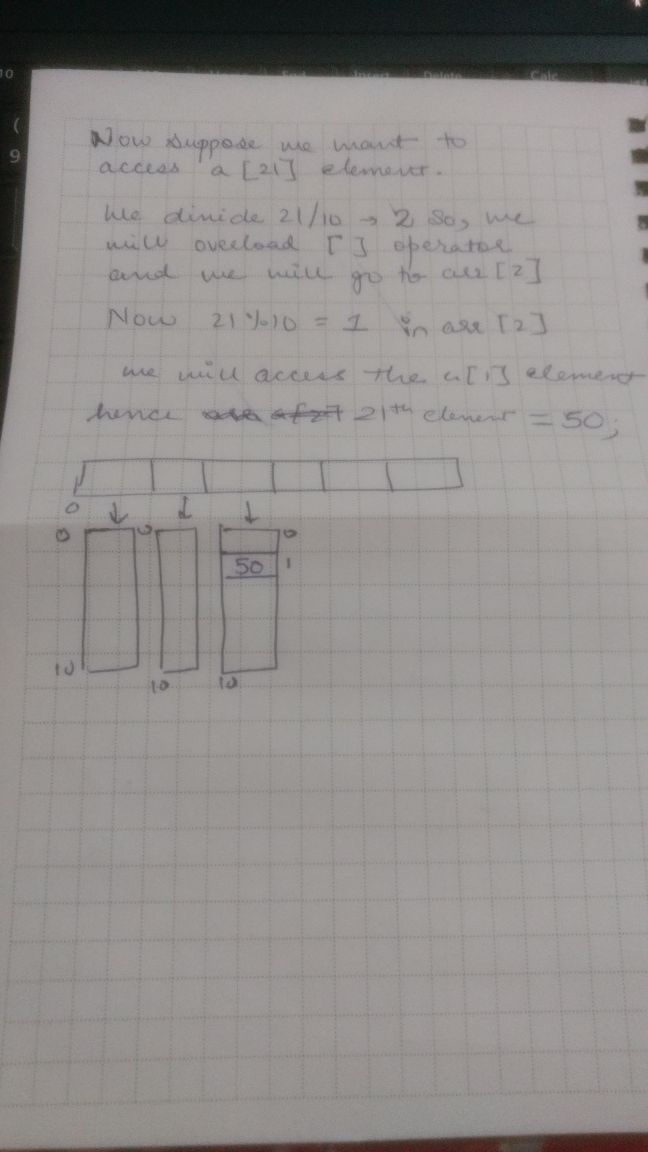 Now suppose we want to
access a [21] element.
We divide 21/10 → 2 So, we
will overload [ ] operator
and we will go to arr [2]
Now 21%10 = 1 in arr [2]
we will access the a[1] element
hence 21th element = 50;
0
0 0 0
50 1
10 10 10